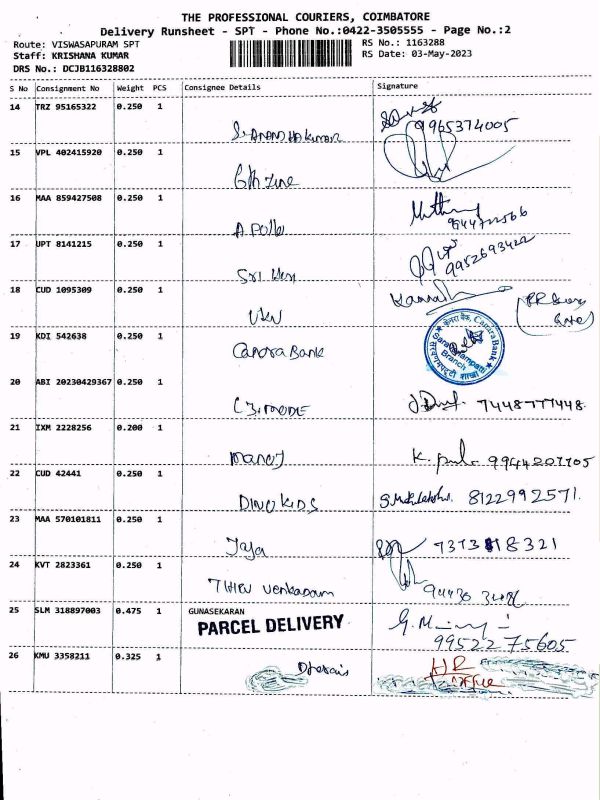 THE PROFESSIONAL COURIERS, COIMBATORE
Delivery Runsheet - SPT - Phone No.:0422-3505555 - Page No.:2
Route: VISWASAPURAM SPT
RS No.: 1163288
Staff: KRISHANA KUMAR
RS Date: 03-May-2023
DRS No.: DCJB116328802
S No Consignment No Weight PCS Consignee Details Signature
14 TRZ 95165322 0.250 1
S. ANANDHAKUMAR 9965374005
15 VPL 402415920 0.250 1
16 MAA 859427508 0.250 1
Apollo
17 UPT 8141215 0.250 1
Sri 9952693422
18 CUD 1095309 0.250 1
VKV
19 KDI 542638 0.250 1
Canara Bank
केनरा बैंक, Canara Bank
Saravanampatti
Branch
20 ABI 20230429367 0.250 1
7448777448
21 IXM 2228256 0.200 1
Manoj K. 9944207705
22 CUD 42441 0.250 1
DINO KIDS 8122992571
23 MAA 570101811 0.250 1
Jaja 7373 18321
24 KVT 2823361 0.250 1
THIRU Venkadam
25 SLM 318897003 0.475 1 GUNASEKARAN
PARCEL DELIVERY G.
99522 75605
26 KMU 3358211 0.325 1
HR
office